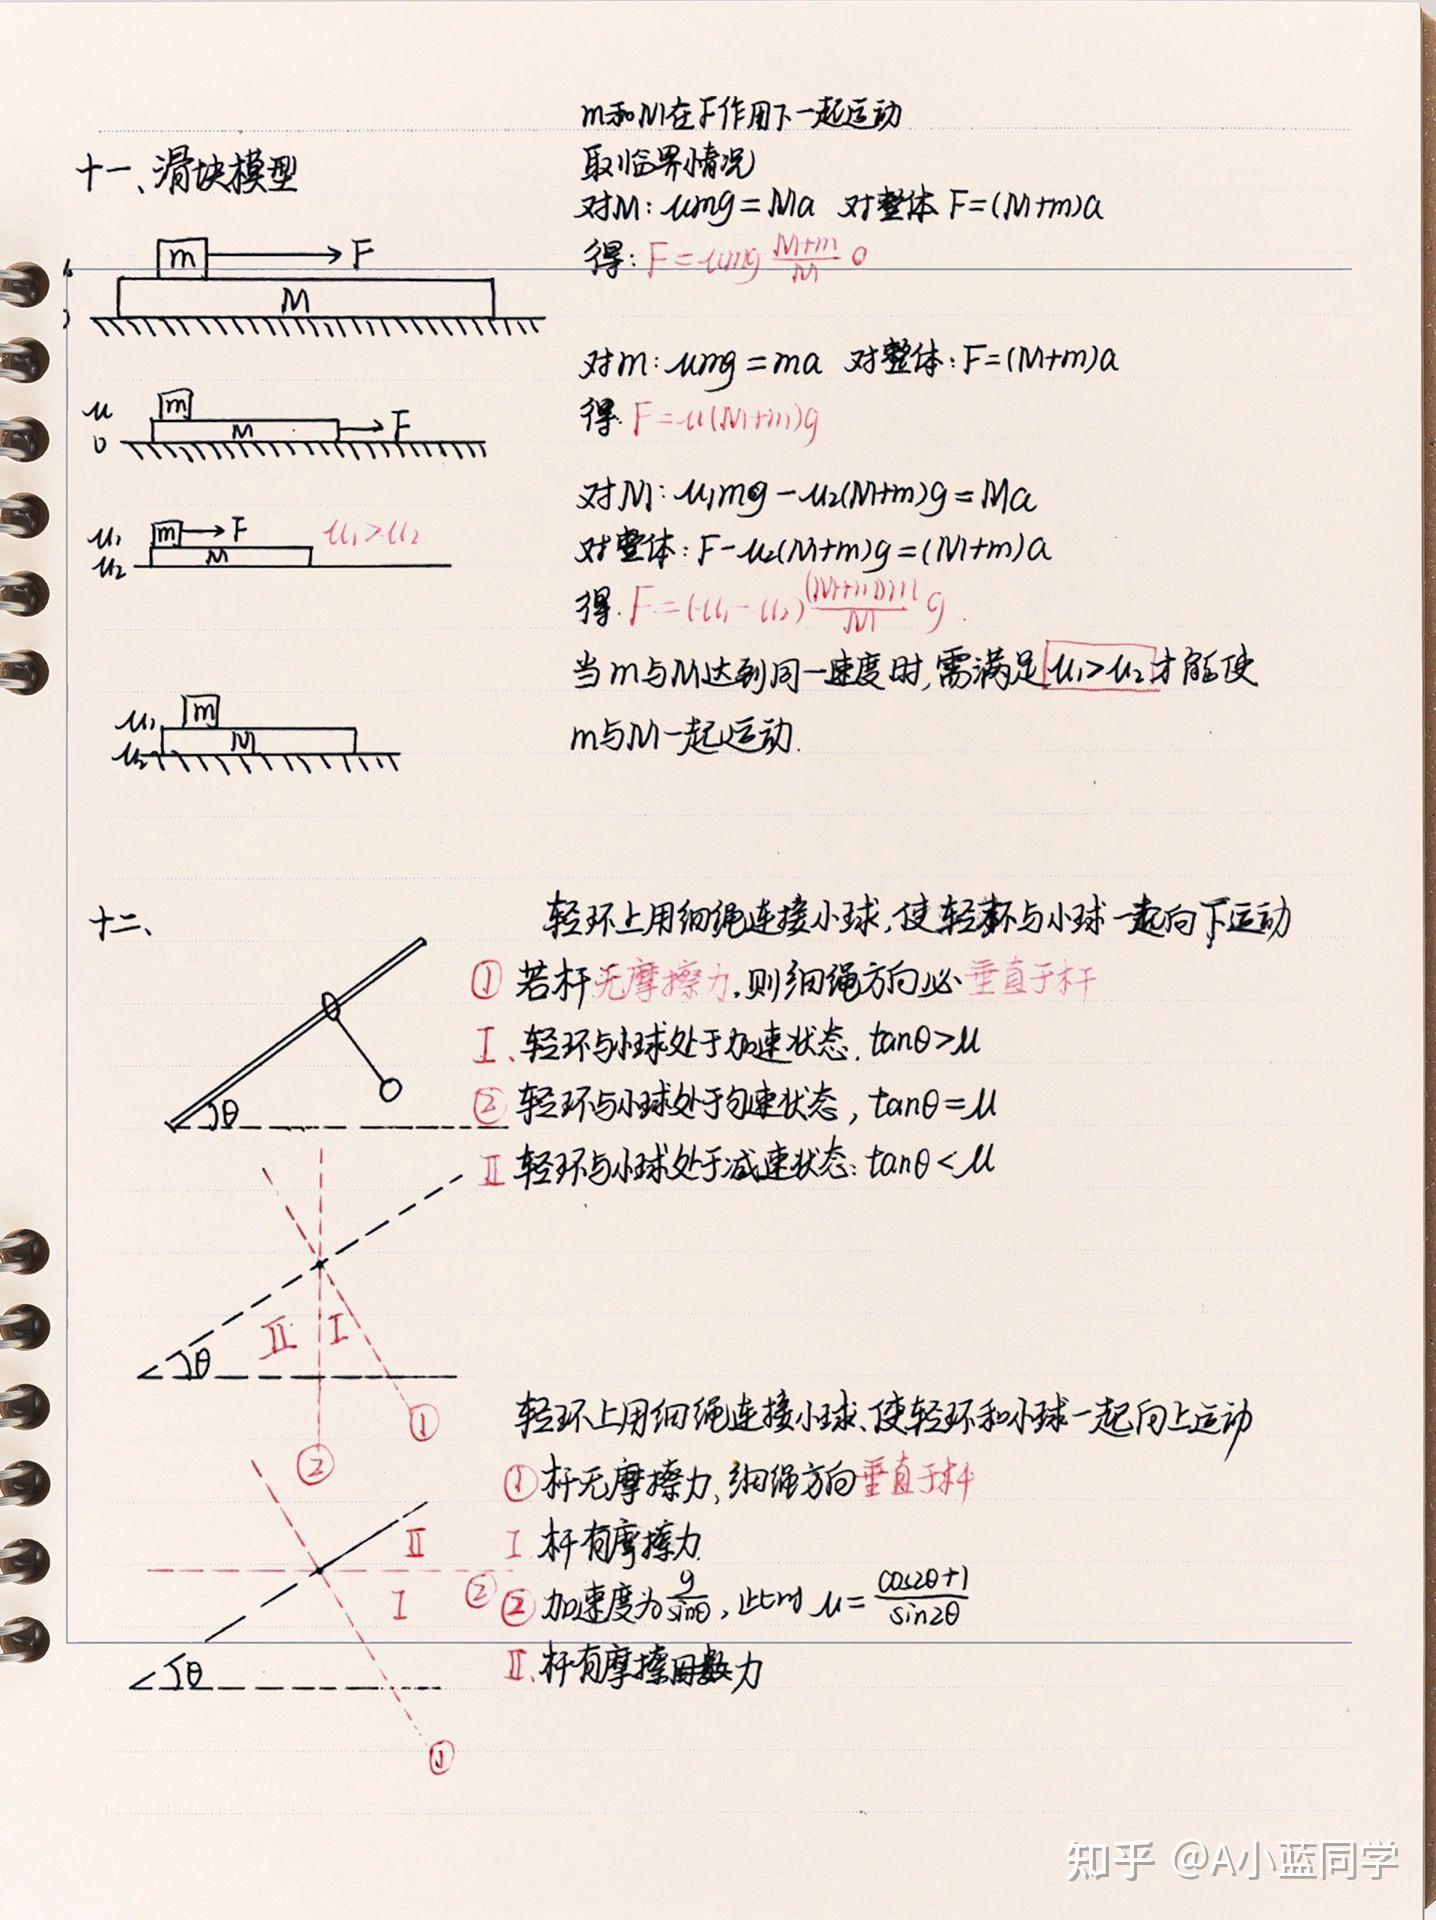 m和M在F作用下一起运动
十一、滑块模型
取临界情况
对M: μmg=Ma 对整体 F=(M+m)a
得: F=μmg (M+m)/M 。
m F
M
对m: μmg=ma 对整体: F=(M+m)a
得. F=μ(M+m)g
μ m
0 M F
对M: μ₁mg-μ₂(M+m)g=Ma
μ₁ m F μ₁>μ₂
μ₂ M
对整体: F-μ₂(M+m)g=(M+m)a
得. F=(μ₁-μ₂) (M+m)m/M g.
当m与M达到同一速度时,需满足 μ₁>μ₂ 才能使
m与M一起运动.
μ₁ m
μ₂ M
十二、
轻环上用细绳连接小球,使轻环与小球一起向下运动
① 若杆无摩擦力,则细绳方向必垂直于杆
Ⅰ、轻环与小球处于加速状态. tanθ>μ
② 轻环与小球处于匀速状态, tanθ=μ
θ
Ⅱ 轻环与小球处于减速状态: tanθ<μ
Ⅱ Ⅰ
θ
① 
②
轻环上用细绳连接小球、使轻环和小球一起向上运动
① 杆无摩擦力、细绳方向垂直于杆
Ⅰ. 杆有摩擦力
② 加速度为 g/sinθ, 此时 μ= (cos2θ+1)/sin2θ
Ⅱ. 杆有摩擦力
Ⅱ
Ⅰ ②
θ
①
知乎 @A小蓝同学